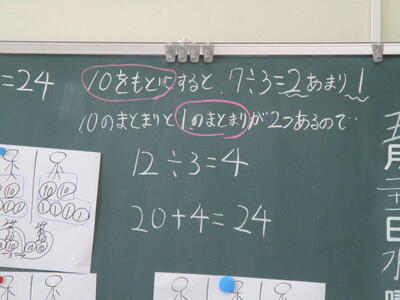 =24
10をもとにすると、7÷3=2あまり1
10のまとまりと1のまとまりが2つあるので…
12÷3=4
20+4=24
五月二十日水曜